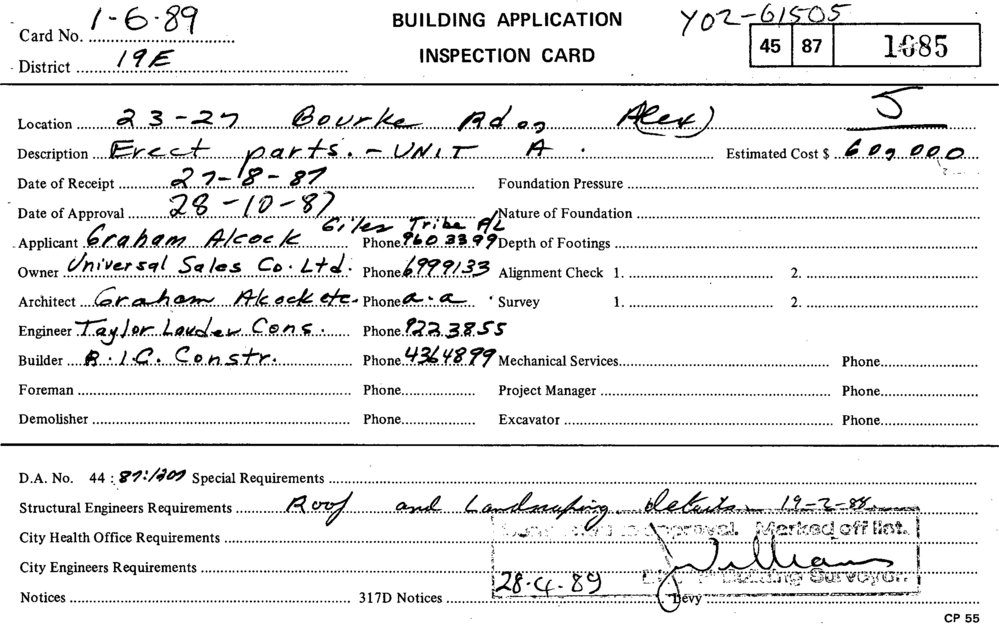 Card No. 1-6-89 BUILDING APPLICATION Y02-61505
District 19E INSPECTION CARD 45 87 1085
Location 23-27 Bourke Rd (Alex) 5
Description Erect parts. - UNIT A. Estimated Cost $ 600,000
Date of Receipt 27-8-87 Foundation Pressure
Date of Approval 28-10-87 Nature of Foundation
Giles Tribe P/L
Applicant Graham Alcock Phone 960 3399 Depth of Footings
Owner Universal Sales Co. Ltd. Phone 6999133 Alignment Check 1. 2.
Architect Graham Alcock etc. Phone a.a. Survey 1. 2.
Engineer Taylor Lauder Cons. Phone 922 3855
Builder B.I.C. Constr. Phone 4364899 Mechanical Services Phone
Foreman Phone Project Manager Phone
Demolisher Phone Excavator Phone
D.A. No. 44 : 87: Special Requirements
Structural Engineers Requirements Roof and Landscaping details 19-2-88
City Health Office Requirements approval. Marked off list.
City Engineers Requirements Williams
28.4.89 Building Surveyor.
Notices 317D Notices Levy
CP 55